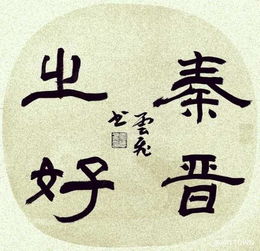 秦晋
之好
云飞
书